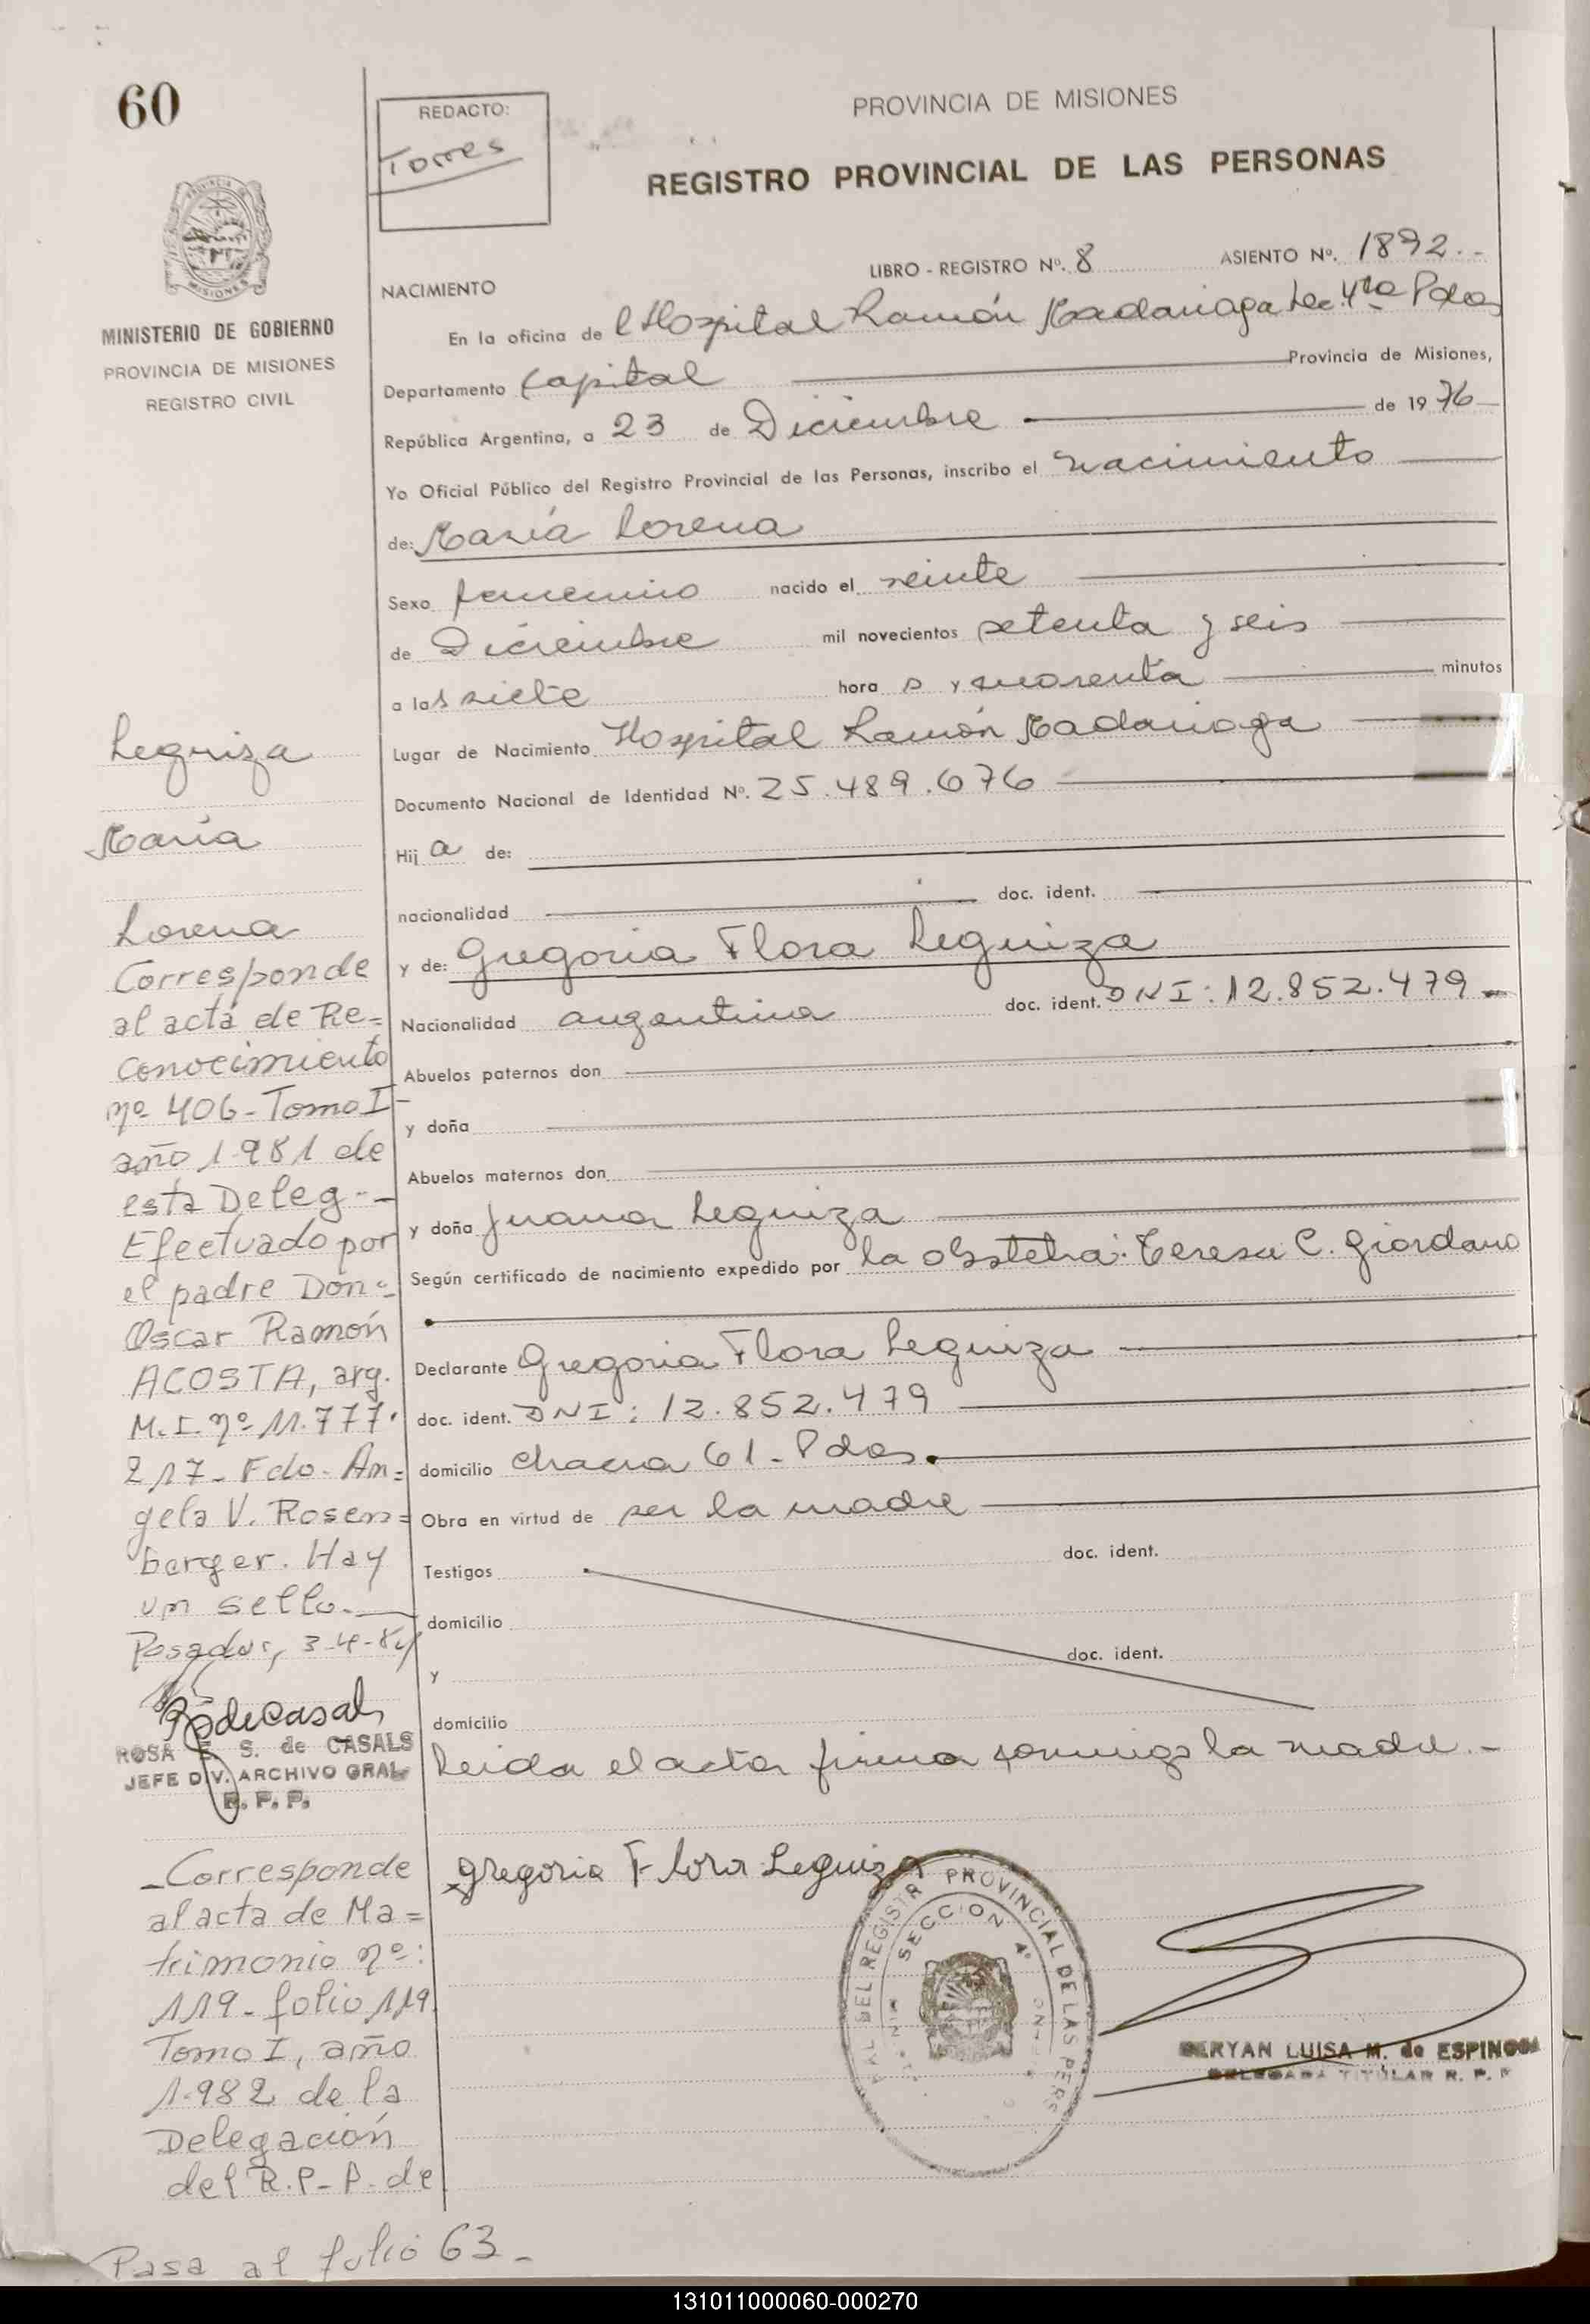 60
REDACTO:
Torres
PROVINCIA DE MISIONES
REGISTRO PROVINCIAL DE LAS PERSONAS
MISIONES
MINISTERIO DE GOBIERNO
PROVINCIA DE MISIONES
REGISTRO CIVIL
LIBRO - REGISTRO Nº. 8 ASIENTO Nº. 1892.-
NACIMIENTO
En la oficina de l Hospital Ramón Madariaga Sec 4ta Pdas
Departamento Capital Provincia de Misiones,
República Argentina, a 23 de Diciembre de 1976
Yo Oficial Público del Registro Provincial de las Personas, inscribo el nacimiento
de: María Lorena
Sexo femenino nacido el veinte
de Diciembre mil novecientos setenta y seis
a las siete hora s y cuarenta minutos
Lugar de Nacimiento Hospital Ramón Madariaga
Documento Nacional de Identidad Nº. 25.489.676
Hij a de:
nacionalidad doc. ident.
y de: Gregoria Flora Leguiza
Nacionalidad argentina doc. ident. DNI: 12.852.479
Abuelos paternos don
y doña
Abuelos maternos don
y doña Juana Leguiza
Según certificado de nacimiento expedido por la obstetra: Teresa C. Giordano
Declarante Gregoria Flora Leguiza
doc. ident. DNI: 12.852.479
domicilio chacra 61 - Pdas.
Obra en virtud de ser la madre
Testigos doc. ident.
domicilio
y doc. ident.
domicilio
Leida el acta firma conmigo la madre.-
Gregoria Flora Leguiza
REGISTR PROVINCIAL DE LAS PERS
SECCION 4ª
DERYAN LUISA M. de ESPINOSA
DELEGADA TITULAR R. P. P
Leguiza
María
Lorena
Corresponde
al acta de Re=
conocimiento
nº 406-Tomo I-
año 1981 de
esta Deleg.-
Efectuado por
el padre Don=
Oscar Ramón
ACOSTA, arg.
M.I. nº 11.777.
217- Fdo. An=
gela V. Rosen=
berger. Hay
un sello.
Posadas, 3-4-84
R de Casals
ROSA E. S. de CASALS
JEFE DIV. ARCHIVO GRAL
R. P. P.
-Corresponde
al acta de Ma=
trimonio nº:
119-folio 119
Tomo I, año
1982 de la
Delegación
del R.P.P. de
Pasa al folio 63-
131011000060-000270